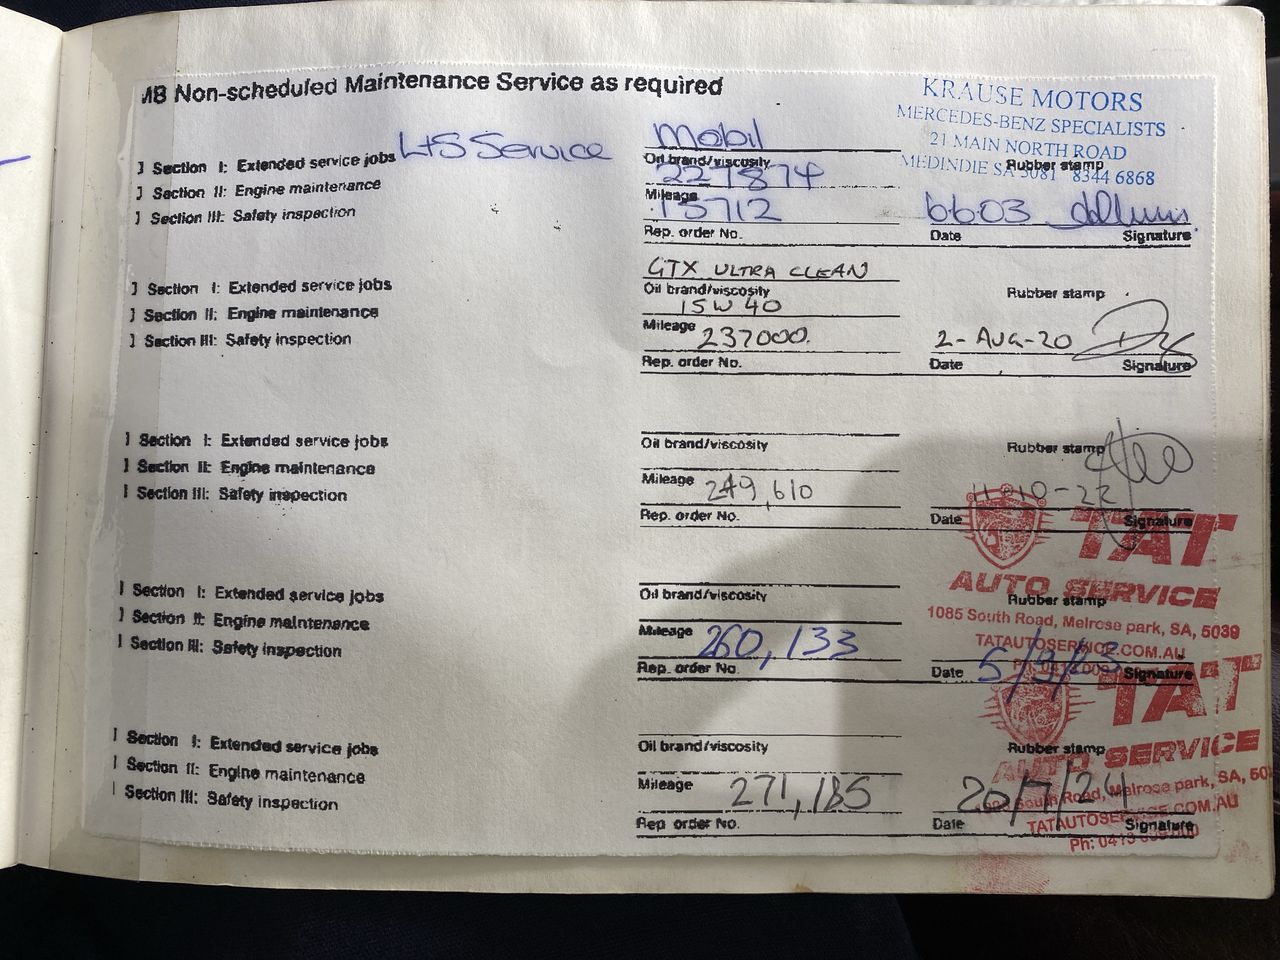 MB Non-scheduled Maintenance Service as required
KRAUSE MOTORS
MERCEDES-BENZ SPECIALISTS
21 MAIN NORTH ROAD
MEDINDIE SA 5081 8344 6868
] Section I: Extended service jobs Service
] Section II: Engine maintenance
] Section III: Safety inspection
Mobil
Oil brand/viscosity
227874
Mileage
15712
Rep. order No.
Rubber stamp
6.6.03
Date Signature
] Section I: Extended service jobs
] Section II: Engine maintenance
] Section III: Safety inspection
GTX ULTRA CLEAN
Oil brand/viscosity
15W40
Mileage 237000.
Rep. order No.
Rubber stamp
2-AUG-20
Date Signature
] Section I: Extended service jobs
] Section II: Engine maintenance
] Section III: Safety inspection
Oil brand/viscosity
Mileage 249,610
Rep. order No.
Rubber stamp
11-10-22
Date Signature
TAT
AUTO SERVICE
1085 South Road, Melrose park, SA, 5039
TATAUTOSERVICE.COM.AU
] Section I: Extended service jobs
] Section II: Engine maintenance
] Section III: Safety inspection
Oil brand/viscosity
Mileage 260,133
Rep. order No.
Rubber stamp
Date Signature
TAT
AUTO SERVICE
South Road, Melrose park, SA, 50
TATAUTOSERVICE.COM.AU
| Section I: Extended service jobs
| Section II: Engine maintenance
| Section III: Safety inspection
Oil brand/viscosity
Mileage 271,185
Rep order No.
Rubber stamp
20/7/24
Date Signature